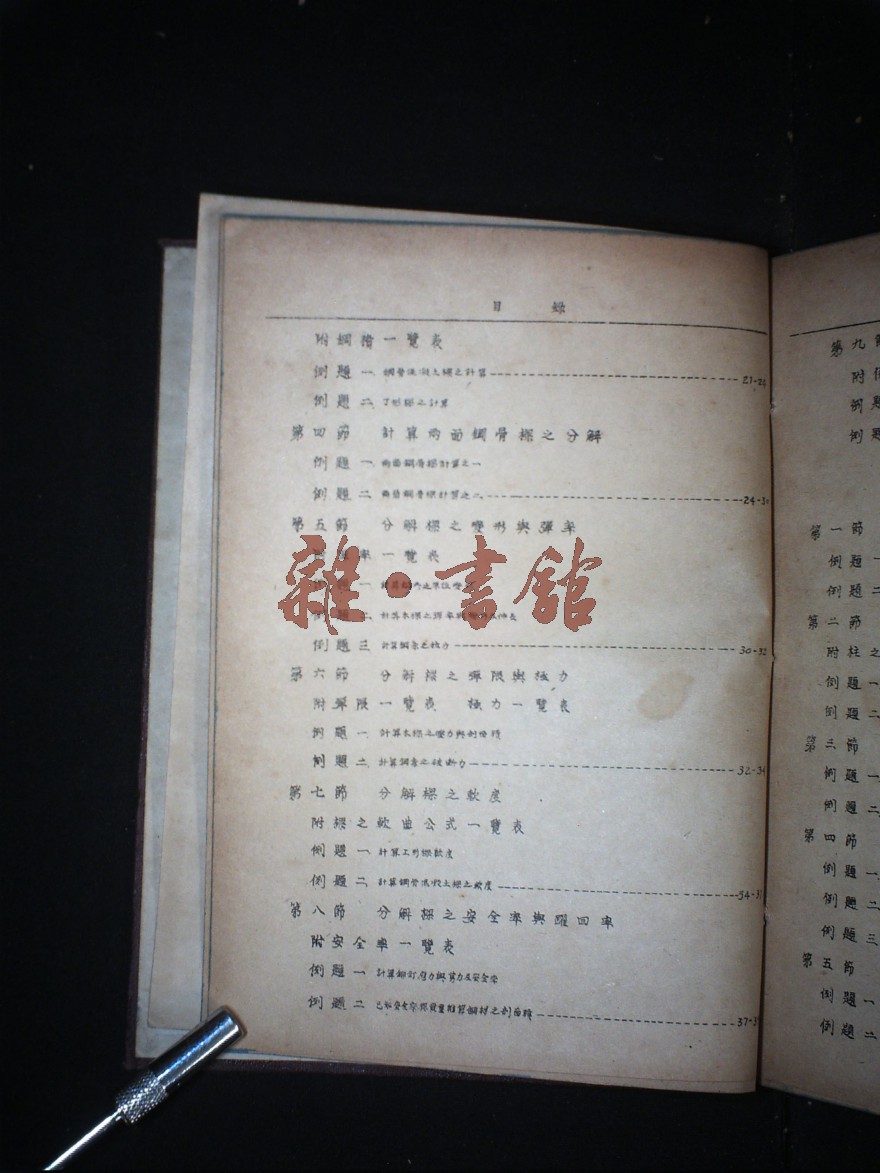 目 錄
附鋼 一覽表
例題一 鋼骨混凝土樑之計算 21-24
例題二 丁形樑之計算
第四節 計算兩面鋼骨樑之分解
例題一 兩面鋼骨樑計算之一
例題二 兩面鋼骨樑計算之二 24-30
第五節 分解樑之變形與彈率
率一覽表
雜·書館
例題三 計算鋼 之 力 30-32
第六節 分解樑之彈限與極力
附彈限一覽表 極力一覽表
例題一 計算木樑之 力與剖面積
例題二 計算鋼 之破斷力 32-34
第七節 分解樑之軟度
附樑之軟曲公式一覽表
例題一 計算工形樑軟度
例題二 計算鋼骨混凝土樑之軟度 34-37
第八節 分解樑之安全率與躍回率
附安全率一覽表
例題一 計算鉚釘 力與實力及安全率
例題二 已知安全率 鋼材之剖面積 37-
第九節
附
例題
例題
第一節
例題一
例題二
第二節
附柱之
例題一
例題二
第三節
例題一
例題二
第四節
例題一
例題二
例題三
第五節
例題一
例題二